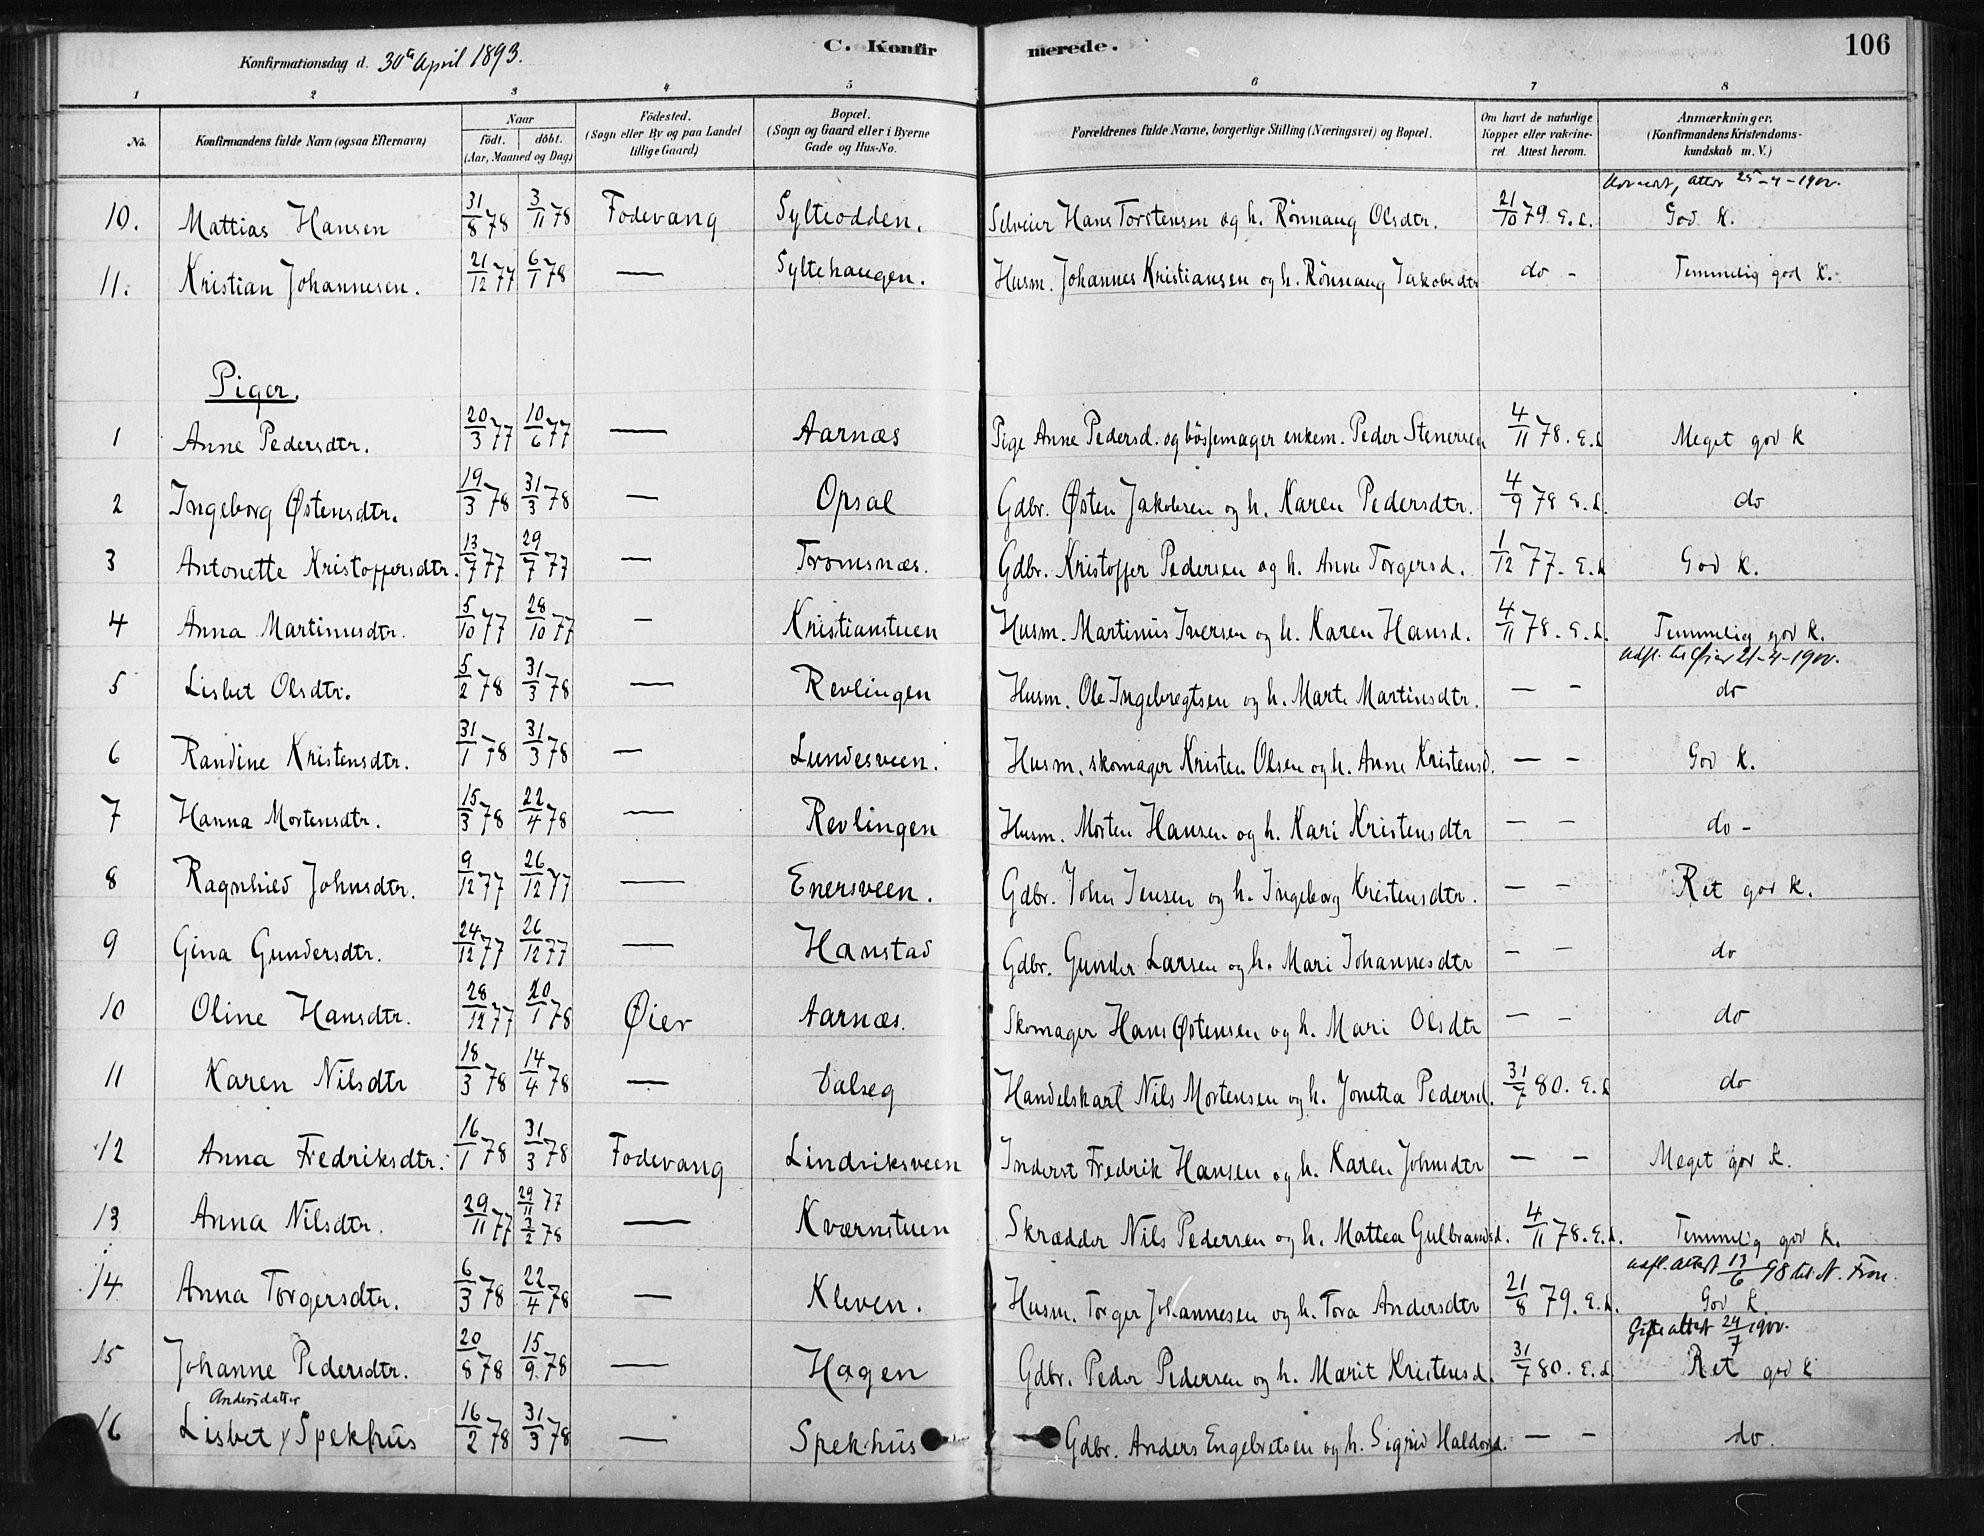 Konfirmationsdag d. 30te April 1893.
C. Konfir
merede.
106
1 2 3 4 5 6 7 8
No.
Konfirmandens fulde Navn (ogsaa Efternavn)
Naar
födt. döbt.
(Aar, Maaned og Dag)
Födested.
(Sogn eller By og paa Landet
tillige Gaard)
Bopæl.
(Sogn og Gaard eller i Byerne
Gade og Hus-No.
Forældrenes fulde Navne, borgerlige Stilling (Næringsvei) og Bopæl.
Om havt de naturlige
Kopper eller vakcine-
ret. Attest herom.
Anmærkninger.
(Konfirmandens Kristendoms-
kundskab m. V.)
attor 25-4-1900.
10. Mattias Hansen 31/8 78 3/11 78 Fodevang Sylteodden. Selveier Hans Torstensen og h. Rönnaug Olsdtr. 21/10 79. E.L. God K.
11. Kristian Johannesen. 21/12 77 6/1 78 — Syltehaugen. Husm. Johannes Kristiansen og h. Rönnaug Jakobsdtr do - Temmelig god K.
Piger.
1 Anne Pedersdtr. 20/3 77 10/6 77 — Aarnæs Pige Anne Pedersd. og bössemager enkem. Peder Stenersen 4/11 78. E.L Meget god K
2 Ingeborg Østensdtr. 19/3 78 31/3 78 — Opsal Gdbr. Østen Jakobsen og h. Karen Pedersdtr. 4/9 78 E.L. do
3 Antonette Kristoffersdtr. 13/7 77 29/7 77 — Tromsnæs. Gdbr. Kristoffer Pedersen og h. Anne Torgersd. 1/12 77. E.L God K.
4 Anna Martinusdtr. 5/10 77 28/10 77 — Kristianstuen Husm. Martinus Iversen og h. Karen Hansd. 4/11 78. E.L. Temmelig god K.
Udfl. til Øier 21-4-1900.
5 Lisbet Olsdtr. 5/2 78 31/3 78 — Revlingen Husm. Ole Ingebregtsen og h. Marte Martinsdtr. — - do
6 Randine Kristensdtr. 31/1 78 31/3 78 — Lundesveen. Husm. skomager Kristen Olsen og h. Anne Kristensd. — - God K.
7 Hanna Mortensdtr. 15/3 78 22/4 78 — Revlingen Husm. Morten Hansen og h. Kari Kristensdtr — - do -
8 Ragnhild Johnsdtr. 9/12 77 26/12 77 — Enersveen. Gdbr. John Jensen og h. Ingeborg Kristensdtr. — - Ret god K.
9 Gina Gundersdtr. 24/12 77 26/12 77 — Hanstad Gdbr. Gunder Larsen og h. Mari Johannesdtr — - do
10 Oline Hansdtr. 28/12 77 20/1 78 Øier Aarnæs. Skomager Hans Østensen og h. Mari Olsdtr — - do
11 Karen Nilsdtr 18/3 78 14/4 78 — Dalseg Handelskarl Nils Mortensen og h. Jonetta Pedersd. 31/7 80. E.L do
12 Anna Fredriksdtr. 16/1 78 31/3 78 Fodevang Lindriksveen Inderst Fredrik Hansen og h. Karen Johnsdtr — - Meget god K.
13 Anna Nilsdtr. 29/11 77 29/11 77 3/2 78 — Kværnstuen Skrædder Nils Pedersen og h. Mattea Gulbrandsd. 4/11 78. E.L. Temmelig god K.
Udfl. attest 13/6 98 til N. Fron.
14 Anna Torgersdtr. 6/3 78 22/4 78 — Kleven. Husm. Torger Johannesen og h. Tora Andersdtr 21/8 79. E.L. God K.
Gifte attest 24/7 1900.
15 Johanne Pedersdtr. 20/8 78 15/9 78 — Hagen Gdbr. Peder Pedersen og h. Marit Kristensd. 31/7 80. E.L Ret god K
Andersdatter
16 Lisbet Spekhus 16/2 78 31/3 78 — Spekhus Gdbr. Anders Engebretsen og h. Sigrid Haldorsd. — - do.